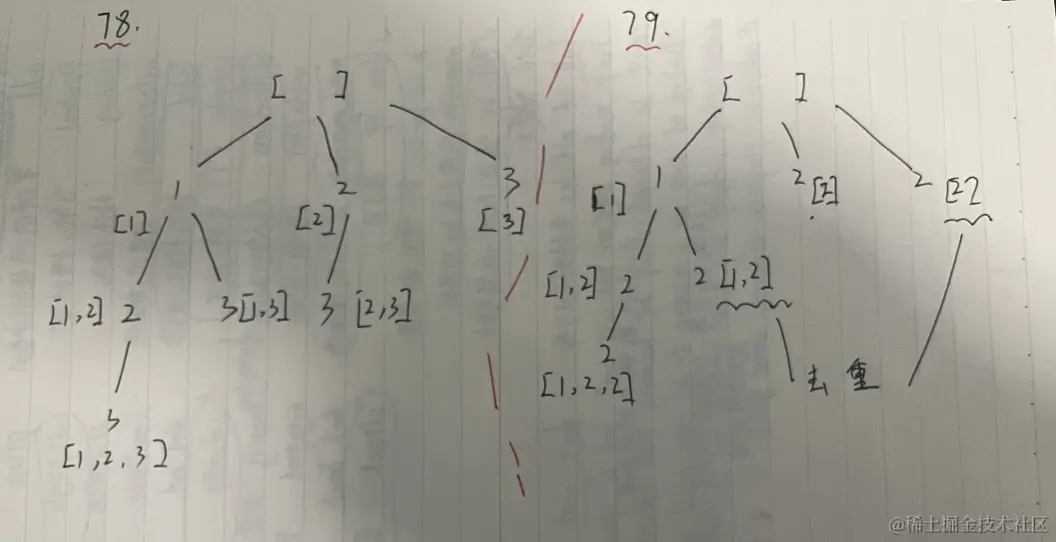 78.
[ ]
1 2 3
[1] [2] [3]
[1,2] 2 3 [1,3] 3 [2,3]
3
[1,2,3]
79.
[ ]
1 2 [2] 2 [2]
[1]
[1,2] 2 2 [1,2]
2
[1,2,2]
去重
@稀土掘金技术社区